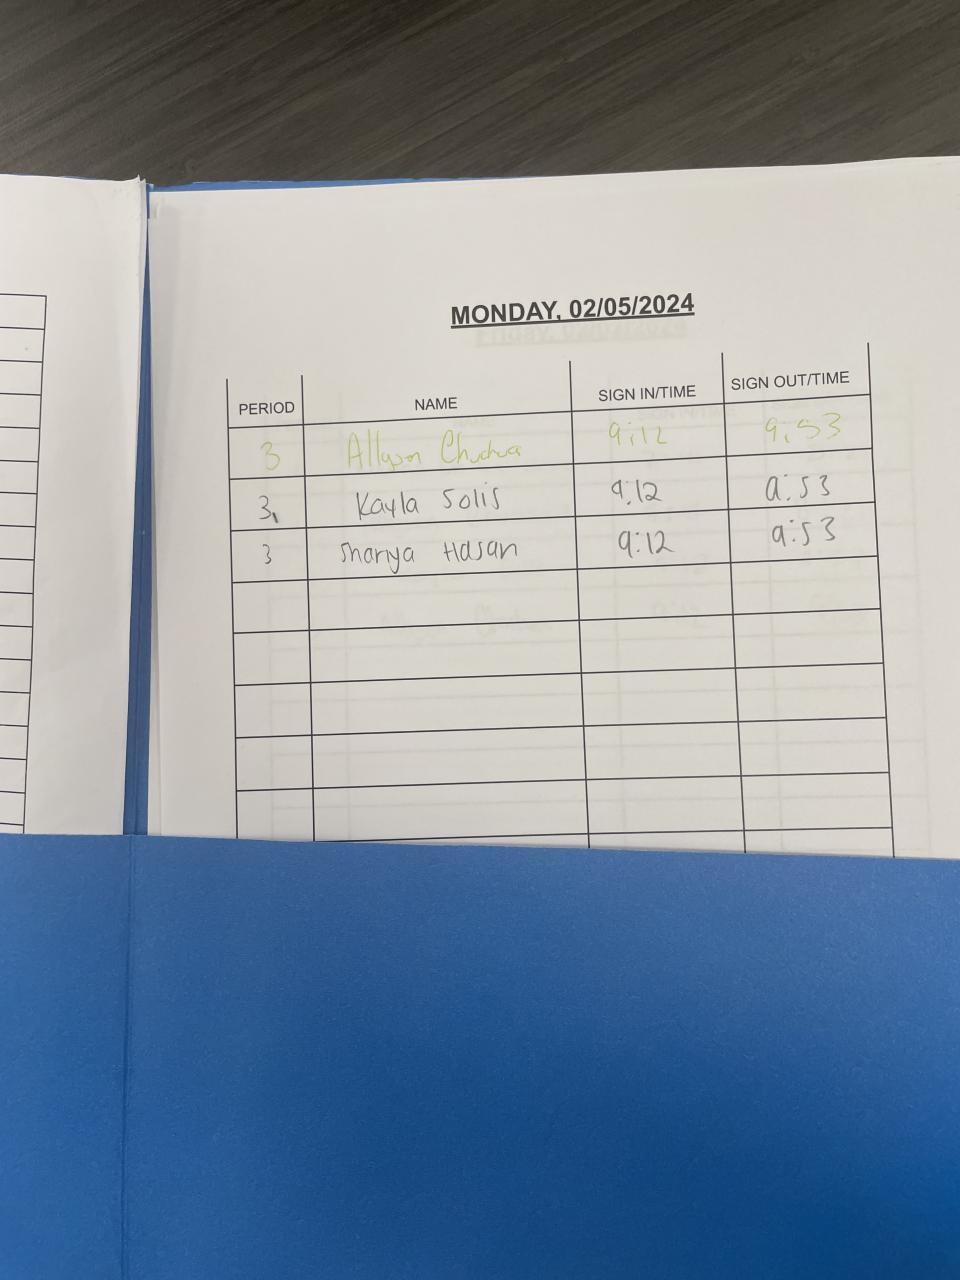 MONDAY, 02/05/2024
PERIOD NAME SIGN IN/TIME SIGN OUT/TIME
3 Allyson 9:12 9:53
3, Kayla Solis 9:12 9:53
3 Shanya Hasan 9:12 9:53